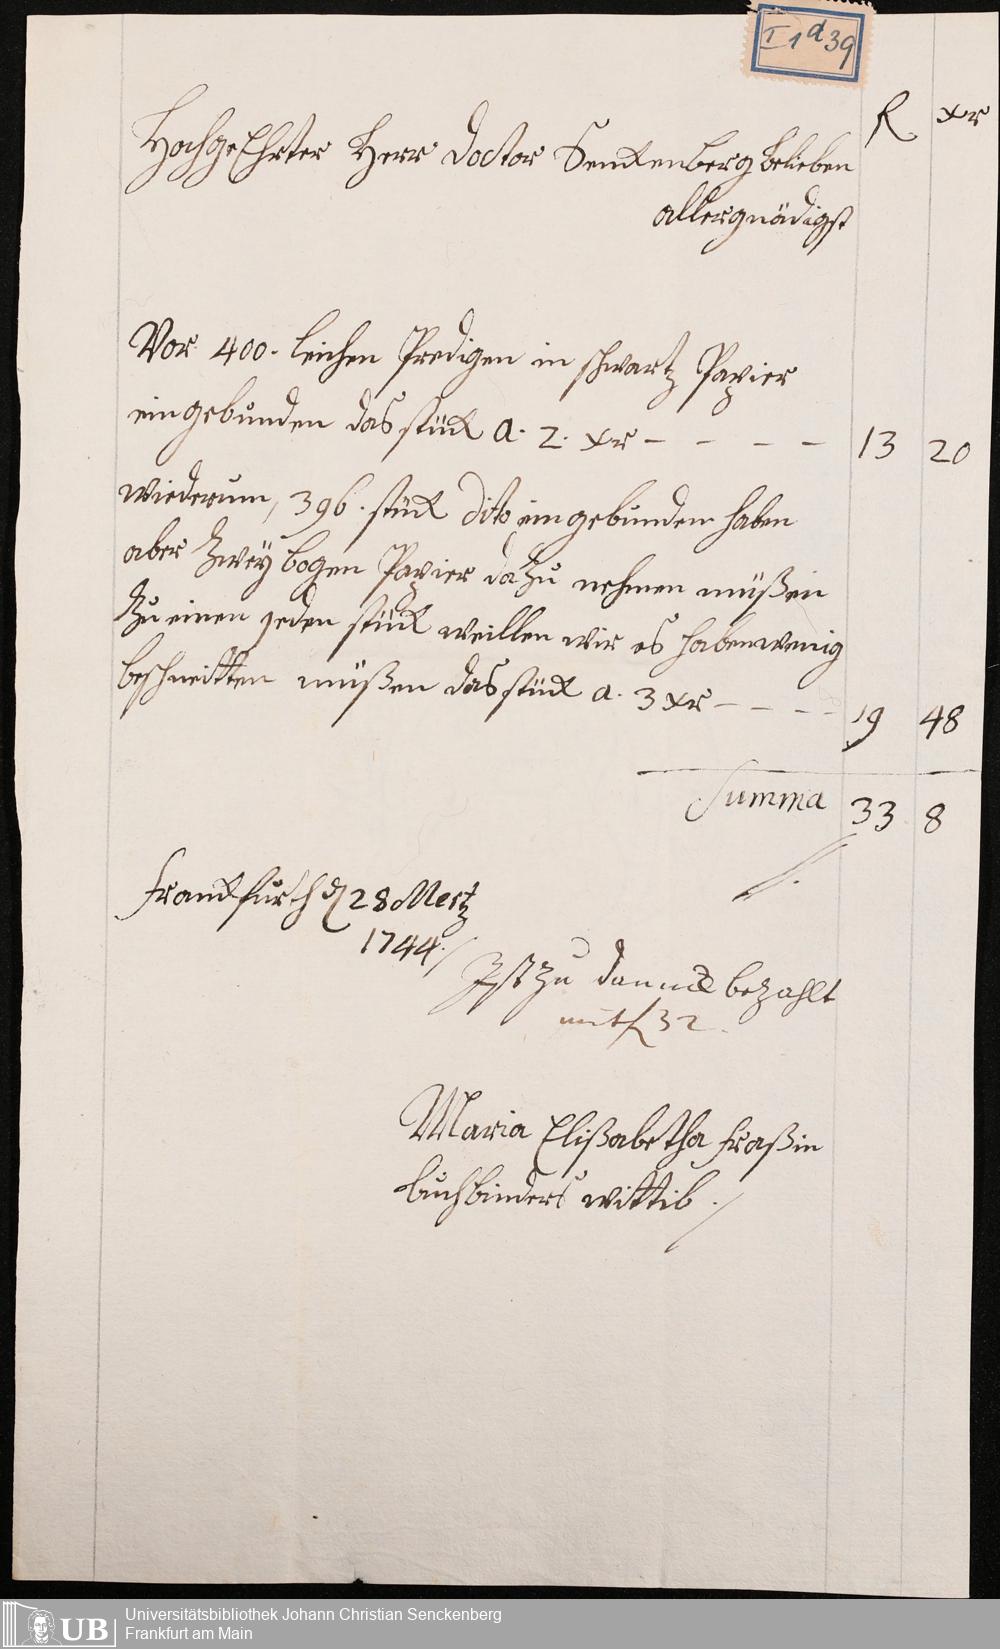 I 1 d 39
fl xr
HochgeEhrter Herr Doctor Senckenberg belieben
allergnädigst
Vor 400. leichen Predigen in schwartz Papier
eingebunden das stück a. 2. xr - - - - 13 20
wiederum, 396. stück dito eingebunden haben
aber zweÿ bogen Papier dazu nehmen müßen
zu einen jeden stück weillen wir es haben wenig
beschneitten müßen das stück a. 3 xr - - - - 19 48
Summa 33 8
Franckfurth d 28 Mertz
1744.
Ist zu danck bezahlt
mit fl 32.
Maria Elißabetha Fraßin
buchbinders wittib.
UB Universitätsbibliothek Johann Christian Senckenberg
Frankfurt am Main